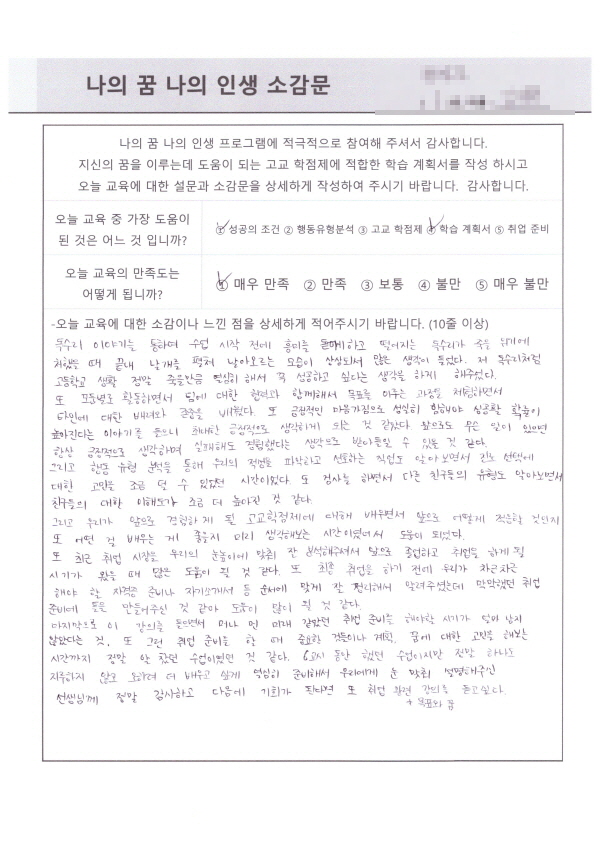 나의 꿈 나의 인생 소감문
나의 꿈 나의 인생 프로그램에 적극적으로 참여해 주셔서 감사합니다.
지신의 꿈을 이루는데 도움이 되는 고교 학점제에 적합한 학습 계획서를 작성 하시고
오늘 교육에 대한 설문과 소감문을 상세하게 작성하여 주시기 바랍니다. 감사합니다.
오늘 교육 중 가장 도움이
된 것은 어느 것 입니까?
① 성공의 조건 ② 행동유형분석 ③ 고교 학점제 ④ 학습 계획서 ⑤ 취업 준비
오늘 교육의 만족도는
어떻게 됩니까?
① 매우 만족 ② 만족 ③ 보통 ④ 불만 ⑤ 매우 불만
-오늘 교육에 대한 소감이나 느낀 점을 상세하게 적어주시기 바랍니다. (10줄 이상)
독수리 이야기를 통하여 수업 시작 전에 흥미를 하고 떨어지는 독수리가 죽을 위기에
처했을 때 끝내 날개를 펼쳐 날아오르는 모습이 상상되서 많은 생각이 들었다. 저 독수리처럼
고등학교 생활 정말 죽을만큼 열심히 해서 꼭 성공하고 싶다는 생각을 하지 해주었다.
또 모둠별로 활동하면서 팀에 대한 협력과 함께해서 목표를 이루는 과정을 체험하면서
타인에 대한 배려와 존중을 배웠다. 또 긍정적인 마음가짐으로 성실히 임해야 성공할 확률이
높아진다는 이야기를 들으니 최대한 긍정적으로 생각하게 되는 것 같았다. 앞으로도 무슨 일이 있으면
항상 긍정적으로 생각하며 실패해도 경험했다는 생각으로 받아들일 수 있을 것 같다.
그리고 행동 유형 분석을 통해 우리의 적성을 파악하고 선호하는 직업도 알아보면서 진로 선택에
대한 고민을 조금 덜 수 있었던 시간이었다. 또 검사를 하면서 다른 친구들의 유형도 알아보면서
친구들의 대한 이해도가 조금 더 높아진 것 같다.
그리고 우리가 앞으로 경험하게 될 고교학점제에 대해 배우면서 앞으로 어떻게 적응할 것인지
또 어떤 걸 배우는 게 좋을지 미리 생각해보는 시간이었어서 도움이 되었다.
또 최근 취업 시장을 우리의 눈높이에 맞춰 잘 분석해주셔서 앞으로 졸업하고 취업을 하게 될
시기가 왔을 때 많은 도움이 될 것 같다. 또 최종 취업을 하기 전에 우리가 차근차근
해야 할 자격증 준비나 자기소개서 등 순서에 맞게 잘 정리해서 알려주셨는데 막막했던 취업
준비에 틀을 만들어주신 것 같아 도움이 많이 될 것 같다.
마지막으로 이 강의를 들으면서 머나 먼 미래 같았던 취업 준비를 해야할 시기가 얼마 남지
않았다는 것, 또 그런 취업 준비를 할 때 중요한 것들이나 계획, 꿈에 대한 고민을 해보는
시간까지 정말 알 찼던 수업이었던 것 같다. 6교시 동안 했던 수업이지만 정말 하나도
지루하지 않고 오히려 더 배우고 싶게 열심히 준비해서 우리에게 눈 맞춰 설명해주신
선생님께 정말 감사하고 다음에 기회가 된다면 또 취업 관련 강의를 듣고싶다.
+ 목표와 꿈